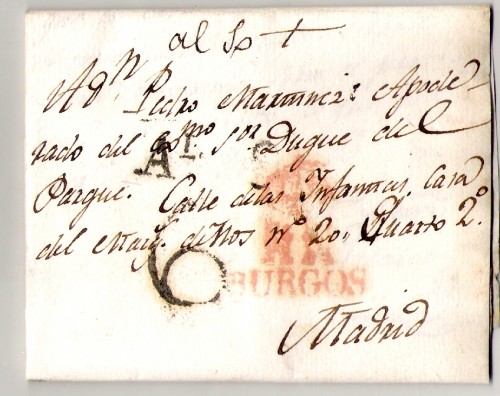 al Sor +
A Dn Pedro Martinez Apode-
rado del Exmo. Sor Duque del
Parque. Calle delas Infantas, Casa
del de Nos nº 20. Quarto 2º
6
BURGOS
Madrid